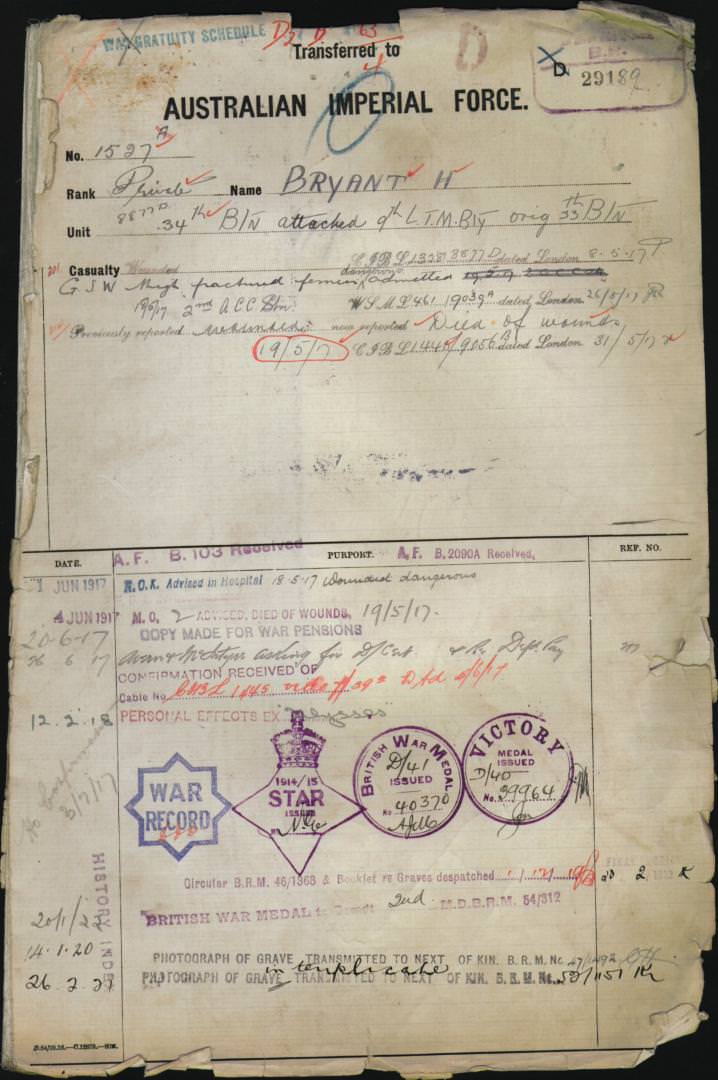 WAR GRATUITY SCHEDULE D2 D 63
4
Transferred to
D
B.R.
D
29189
AUSTRALIAN IMPERIAL FORCE.
No. 1527 A
Rank Private Name BRYANT H
8877 D
Unit 34th B/N attached 9th L.T.M.Bty orig 33th B/N
Casualty Wounded C I B L 1328 8877D dated London 8-5-17
G S W thigh fractured femur dangerous admitted
2nd A.C.C. Stn. W S M L 461 19039A dated London 26/5/17
Previously reported now reported Died of wounds
19/5/17 C I B L 1445 9056 dated London 31/5/17
A.F. B.103 Received
DATE. PURPORT. A.F. B.2090A Received. REF. NO.
1 JUN 1917 N.O.K. Advised in Hospital 18-5-17 Wounded dangerous
4 JUN 1917 M.O. 2 ADVISED, DIED OF WOUNDS, 19/5/17.
20-6-17 COPY MADE FOR WAR PENSIONS
26 6 17 asking for D/Cert & Re Def. Pay
CONFIRMATION RECEIVED OF
Cable No. 1445
12.2.18 PERSONAL EFFECTS EX "Ulysses"
3/7/17
WAR RECORD
1914/15 STAR ISSUED
BRITISH WAR MEDAL
D/41
ISSUED
No 40370
VICTORY
MEDAL ISSUED
D/40
No. 39964
HISTORY INDE
Circular B.R.M. 46/1368 & Booklet re Graves despatched
BRITISH WAR MEDAL to Comdt 2nd. M.D.B.R.M. 54/312
14.1.20 PHOTOGRAPH OF GRAVE TRANSMITTED TO NEXT OF KIN. B.R.M. No
in triplicate
26.2.27 PHOTOGRAPH OF GRAVE TRANSMITTED TO NEXT OF KIN. B.R.M. No.